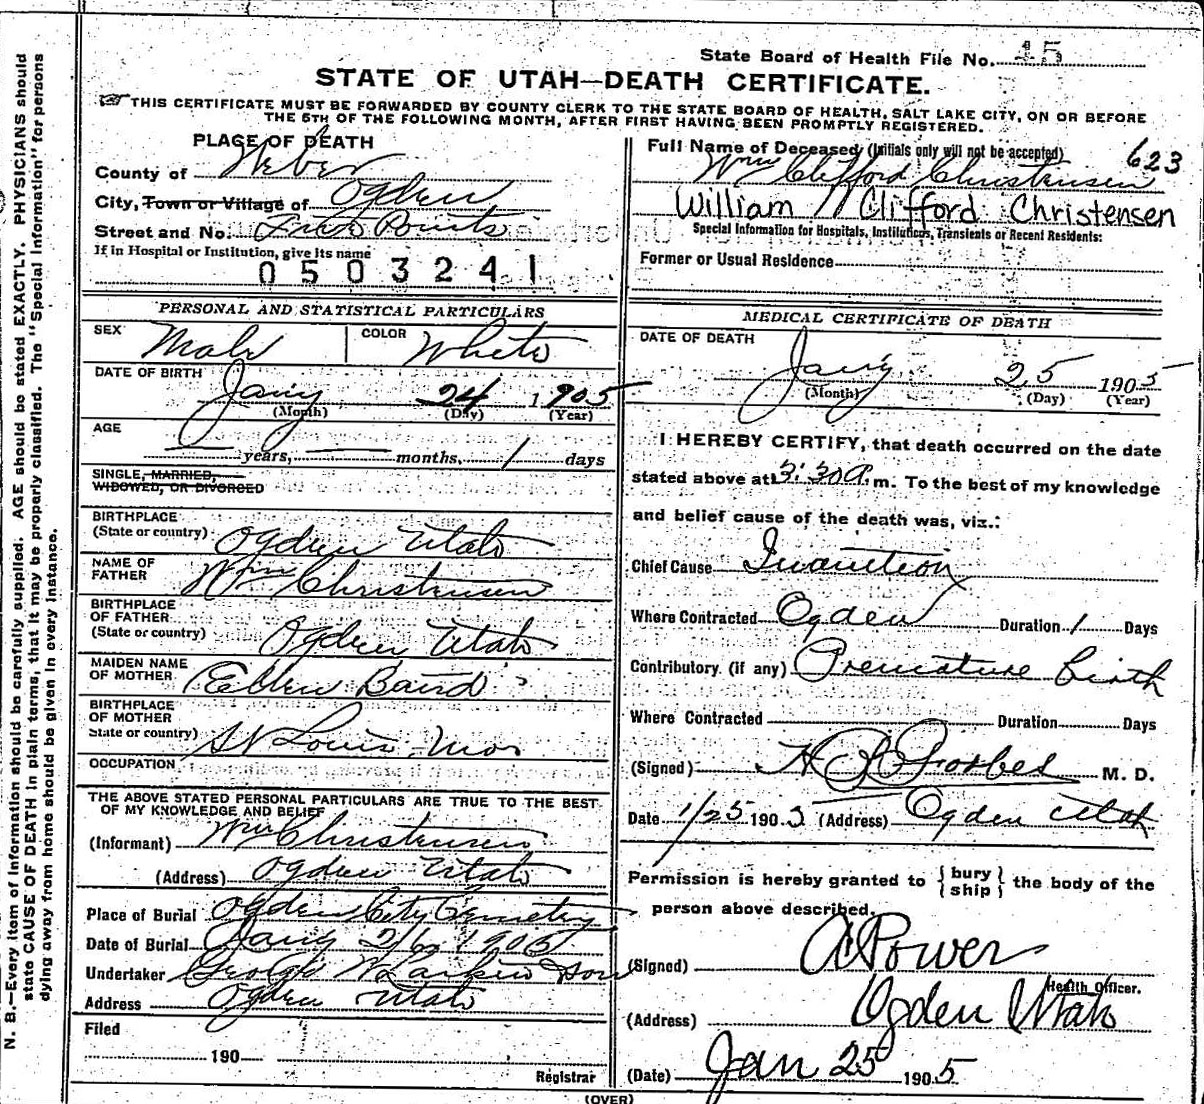 State Board of Health File No. 15
STATE OF UTAH—DEATH CERTIFICATE.
THIS CERTIFICATE MUST BE FORWARDED BY COUNTY CLERK TO THE STATE BOARD OF HEALTH, SALT LAKE CITY, ON OR BEFORE
THE 5TH OF THE FOLLOWING MONTH, AFTER FIRST HAVING BEEN PROMPTLY REGISTERED.
PLACE OF DEATH
County of Weber
City, Town or Village of Ogden
Street and No. Points
If in Hospital or Institution, give its name
0503241
Full Name of Deceased (Initials only will not be accepted) 623
Wm Clifford Christensen
William Clifford Christensen
Special Information for Hospitals, Institutions, Transients or Recent Residents:
Former or Usual Residence
PERSONAL AND STATISTICAL PARTICULARS
SEX Male COLOR White
DATE OF BIRTH Jany 24 1905
(Month) (Day) (Year)
AGE
years, months, 1 days
SINGLE, MARRIED,
WIDOWED, OR DIVORCED
BIRTHPLACE
(State or country) Ogden Utah
NAME OF
FATHER Wm Christensen
BIRTHPLACE
OF FATHER
(State or country) Ogden Utah
MAIDEN NAME
OF MOTHER Ellen Baird
BIRTHPLACE
OF MOTHER
State or country) St Louis Mos
OCCUPATION
THE ABOVE STATED PERSONAL PARTICULARS ARE TRUE TO THE BEST
OF MY KNOWLEDGE AND BELIEF
(Informant) Wm Christensen
(Address) Ogden Utah
Place of Burial Ogden City Cemetery
Date of Burial Jany 26 1905
Undertaker George W Larkin Sons
Address Ogden Utah
Filed
190
Registrar
MEDICAL CERTIFICATE OF DEATH
DATE OF DEATH
Jany 25 1905
(Month) (Day) (Year)
I HEREBY CERTIFY, that death occurred on the date
stated above at 3:30 a.m. To the best of my knowledge
and belief cause of the death was, viz.:
Chief Cause Inanition
Where Contracted Ogden Duration 1 Days
Contributory (if any) Premature birth
Where Contracted Duration Days
(Signed) H Forbes M. D.
Date 1/25 1905 (Address) Ogden Utah
Permission is hereby granted to {bury
ship} the body of the
person above described.
(Signed) A Power
Health Officer.
(Address) Ogden Utah
(Date) Jan 25 1905
(OVER)
N. B.—Every item of information should be carefully supplied. AGE should be stated EXACTLY. PHYSICIANS should
state CAUSE OF DEATH in plain terms, that it may be properly classified. The "Special Information" for persons
dying away from home should be given in every instance.